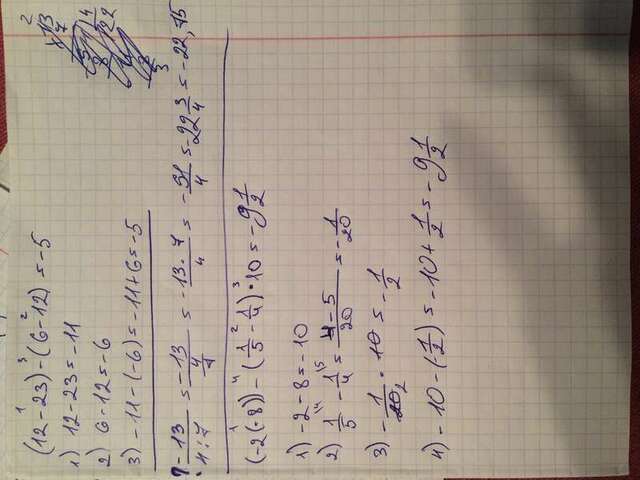 (12 - 23) - (6 - 12) = -5
1) 12 - 23 = -11
2) 6 - 12 = -6
3) -11 - (-6) = -11 + 6 = -5
-13/4:7 = -13/(4/7) = -13·7/4 = -91/4 = -22 3/4 = -22,75
(-2(-8)) - (1/5 - 1/4) · 10 = -9 1/2
1) -2 - 8 = -10
2) 1/5 - 1/4 = 4-5/20 = -1/20
3) -1/20 · 10 = -1/2
4) -10 - (-1/2) = -10 + 1/2 = -9 1/2
2
13
x 7